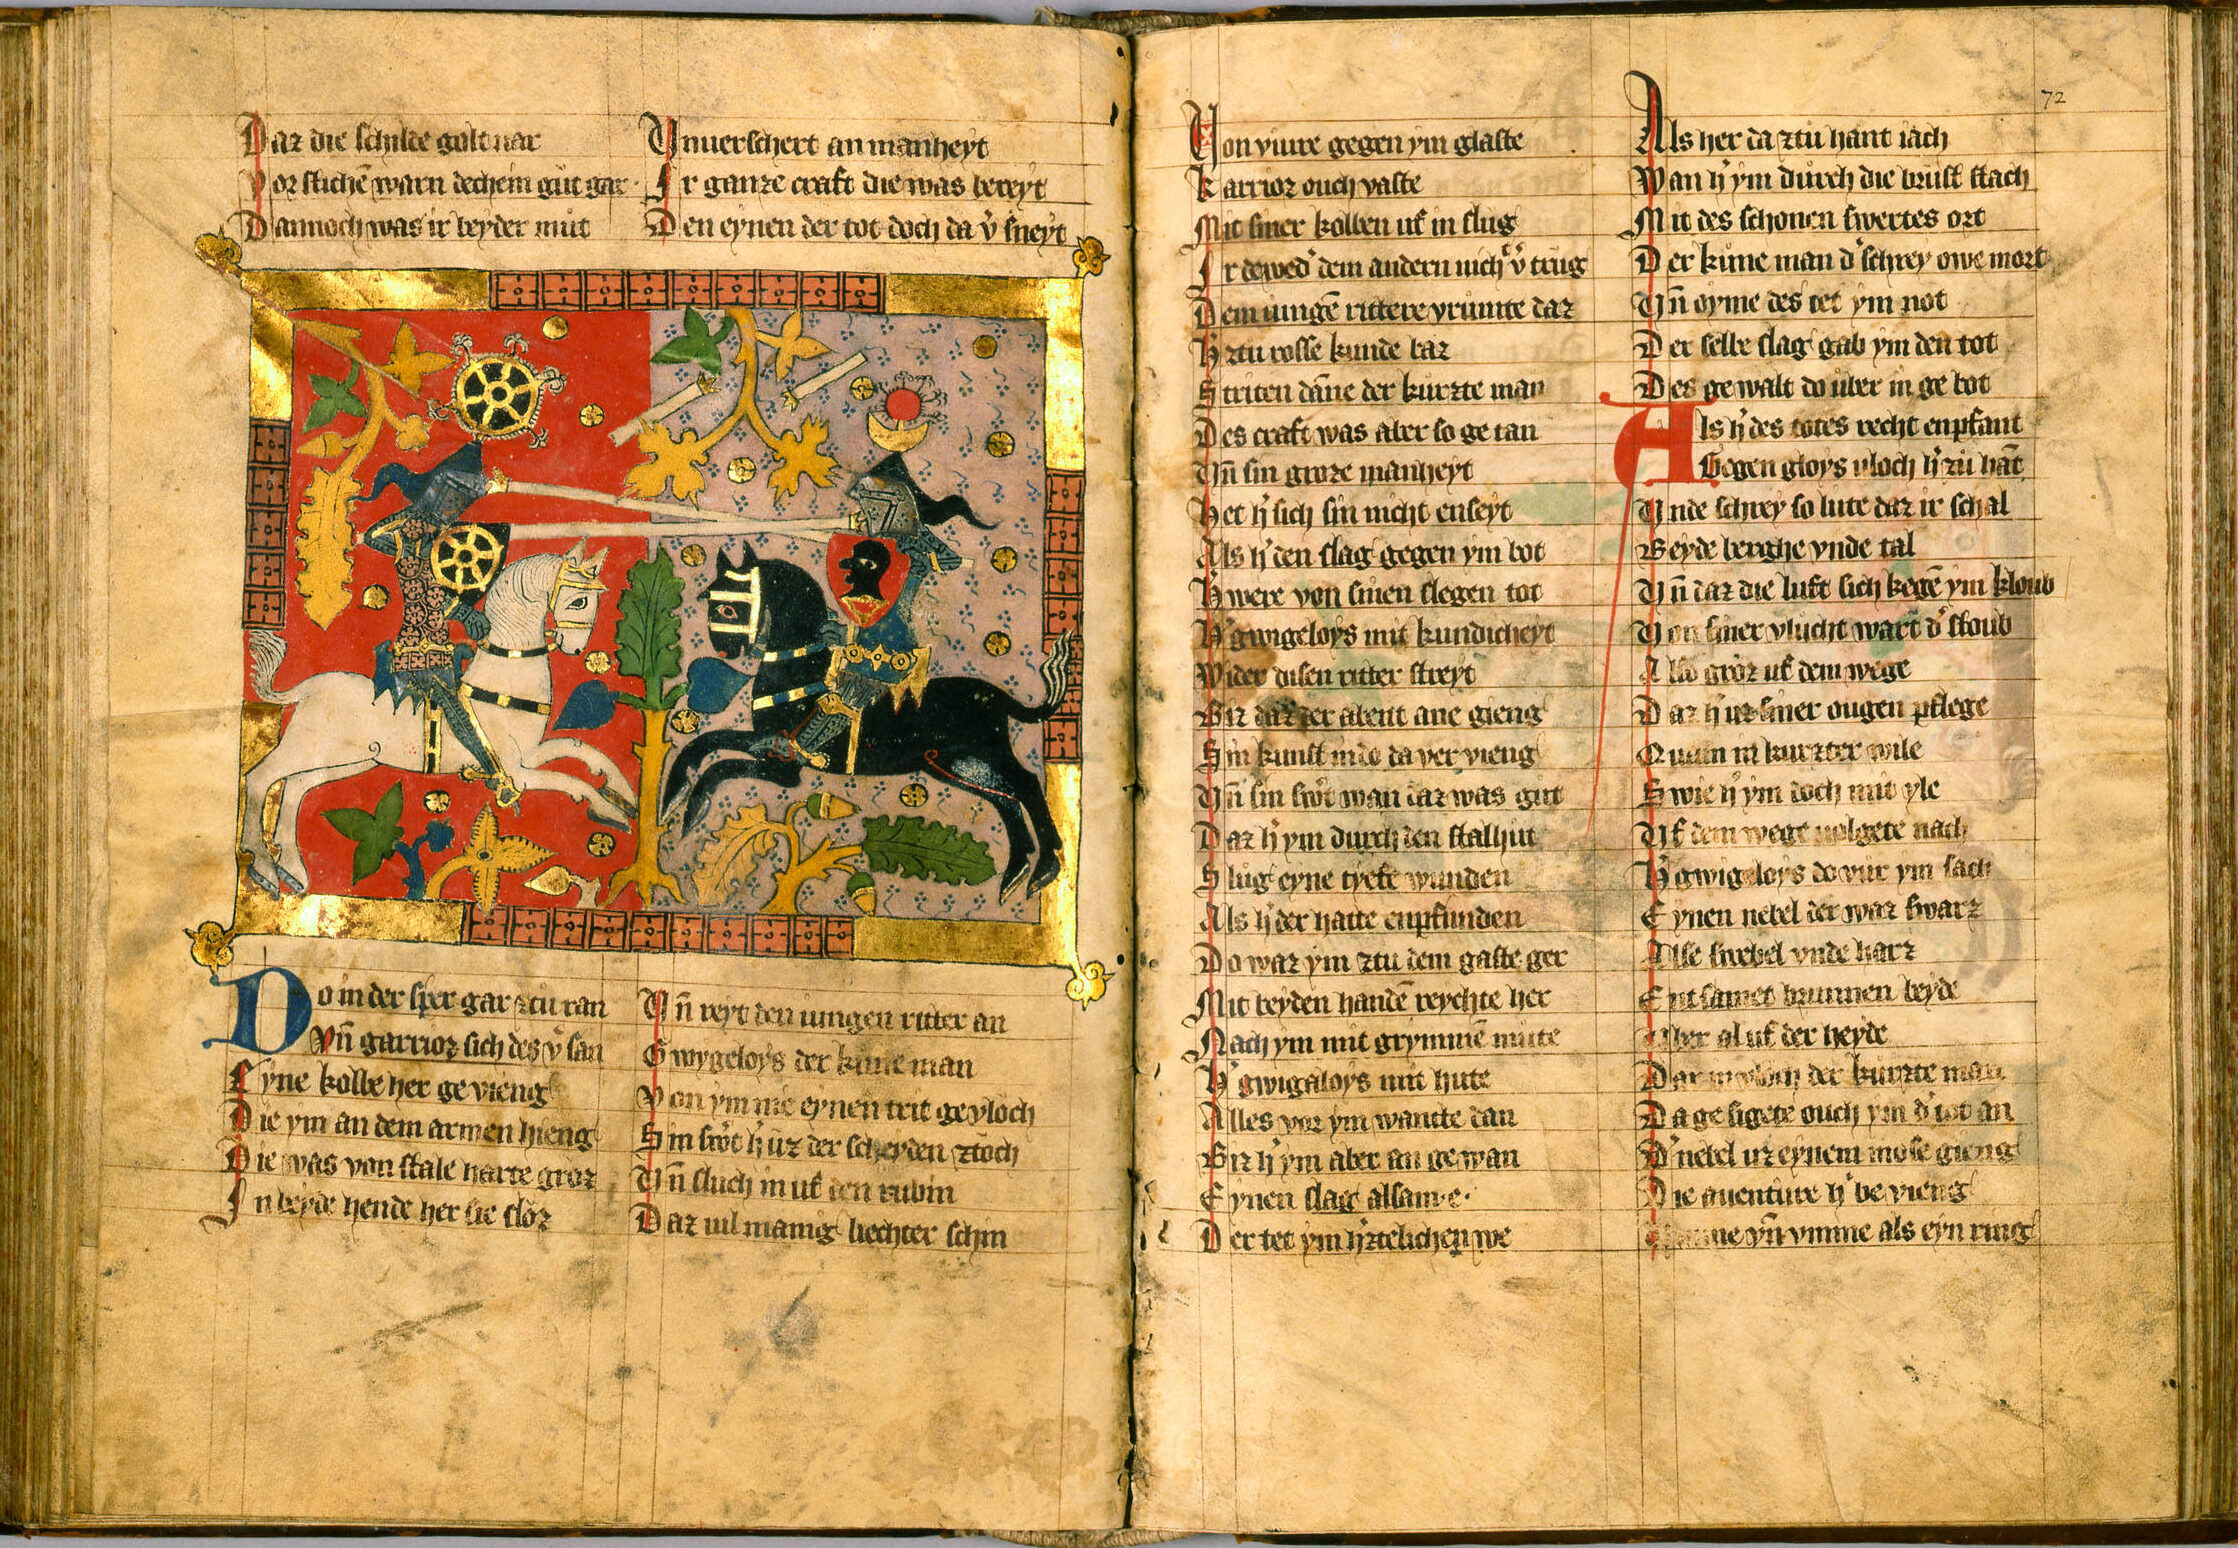 Daz die schilde golt uar
Vor stichē warn dechein gůt gar
Dannoch was ir beyder můt
Vnuerschert an manheyt
Ir ganze craft die was bereyt
Den eynen der tot doch da v̓ sneyt
Do in der sper gar ztu ran
Vn̄ garrioz sich des v̓ san
Eyne kolbe her ge vieng
Die ym an dem armen hieng
Die was von stale harte groz
In beyde hende her sie sloz
Vn̄ reyt den iungen ritter an
Gwygeloys der kune man
Von ym nie eynen trit gevloch
Sin swͦt h̓ uz der scheyden ztoch
Vn̄ sluch in uf den rubin
Daz uil manig liechter schin
72
Von viure gegen ym glaste
Karrioz ouch vaste
Mit siner kolben uf in slug
Ir dewed̓ dem andern nicht v̓ trůg
Dem iungē rittere vrumte daz
H̓ ztu rosse kunde baz
Striten dāne der kurzte man
Des craft was aber so ge tan
Vn̄ sin groze manheyt
Het h̓ sich sin nicht enseyt
Als h̓ den slag gegen ym bot
H̓ were von sinen slegen tot
H̓ gwigeloys mit kundicheyt
Wider disen ritter streyt
Biz daz der abent ane gieng
Sin kunst in do da ver vieng
Vn̄ sin swͦt wan daz was gůt
Daz h̓ ym durch den stalhůt
Slůg eyne tyefe wunden
Als h̓ der hatte enpfunden
Do waz ym ztu dem gaste ger
Mit beyden handē reychte her
Nach ym mit grymmē mute
H̓ gwigaloys mit hute
Alles vor ym wante dan
Biz h̓ ym aber an gewan
Eynen slag alsam e
Der tet ym h̓ztelichen we
Als her da ztu hant iach
Wan h̓ ym durch die brust stach
Mit des schonen swertes ort
Der kune man d̓ schrey owe mort
Vn̄ oyme des tet ym not
Der selbe slag gab ym den tot
Des gewalt do uber in ge bot
Als h̓ des totes recht enpfant
Gegen gloys vloch h̓ zu hāt
Vnde schrey so lute daz ir schal
Beyde berghe vnde tal
Vn̄ daz die luft sich kegē ym kloub
Von siner vlucht wart d̓ stoub
Also groz uf dem wege
Daz h̓ uz siner ougen pflege
Quam in kurzter wile
Swie h̓ ym doch mit yle
Uf dem wege uolgete nach
H̓ gwigeloys do vur ym sach
Eynen nebel der waz swarz
Alse swebel vnde harz
Entsamet brunnen beyde
Uber al uf der heyde
Dar in vloch der kurzte man
Da gesigete ouch ym d̓ tot an
D̓ nebel uz eynem mose gieng
Die auenture h̓ be vieng
vn̄ vmme als eyn ring